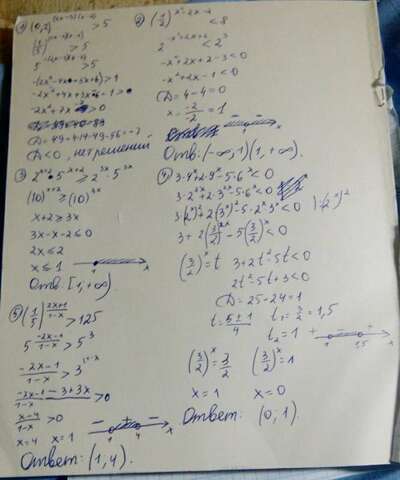 ① (0,2)^((2x-5)(x-2)) > 5
(1/5) > 5
5 > 5
-2x²+
D = 49+14·49-56 = -7
D < 0, нет решений
② (1/2)^(x²-2x-2) < 8
2^(-x²+2x+2) < 2³
-x²+2x+2-3<0
-x²+2x-1<0
D = 4-4=0
x = -2/-2 = 1
- - x
1
Ответ: (-∞,1)(1,+∞).
③ 2^(x+2)·5^(x+2) ≥ 2^(3x)·5^(3x)
(10)^(x+2) ≥ (10)^(3x)
x+2 ≥ 3x
3x-x-2 ≤ 0
2x ≤ 2
x ≤ 1
1 x
Ответ. [1,+∞)
④ 3·4^x+2·9^x-5·6^x<0
3·2^(2x)+2·3^(2x)-5·6^x<0
3·(2^x)²+2(3^x)²-5·2^x 3^x<0 ):(2^x)²
3+2(3/2)^(2x)-5(3/2)^x<0
(3/2)^x=t 3+2t²-5t<0
2t²-5t+3<0
D=25-24=1
t=(5±1)/4 t₁=3/2=1,5
t₂=1
+ - +
1 1,5 x
(3/2)^x=3/2 (3/2)^x=1
x=1 x=0
Ответ: (0,1)
⑤ (1/5)^((2x+1)/(1-x)) > 125
5^((-2x-1)/(1-x)) > 5³
(-2x-1)/(1-x) > 3^(1-x)
(-2x-1-3+3x)/(1-x) > 0
(x-4)/(1-x) > 0
x=4 x=1
- + -
1 4 x
Ответ: (1,4).